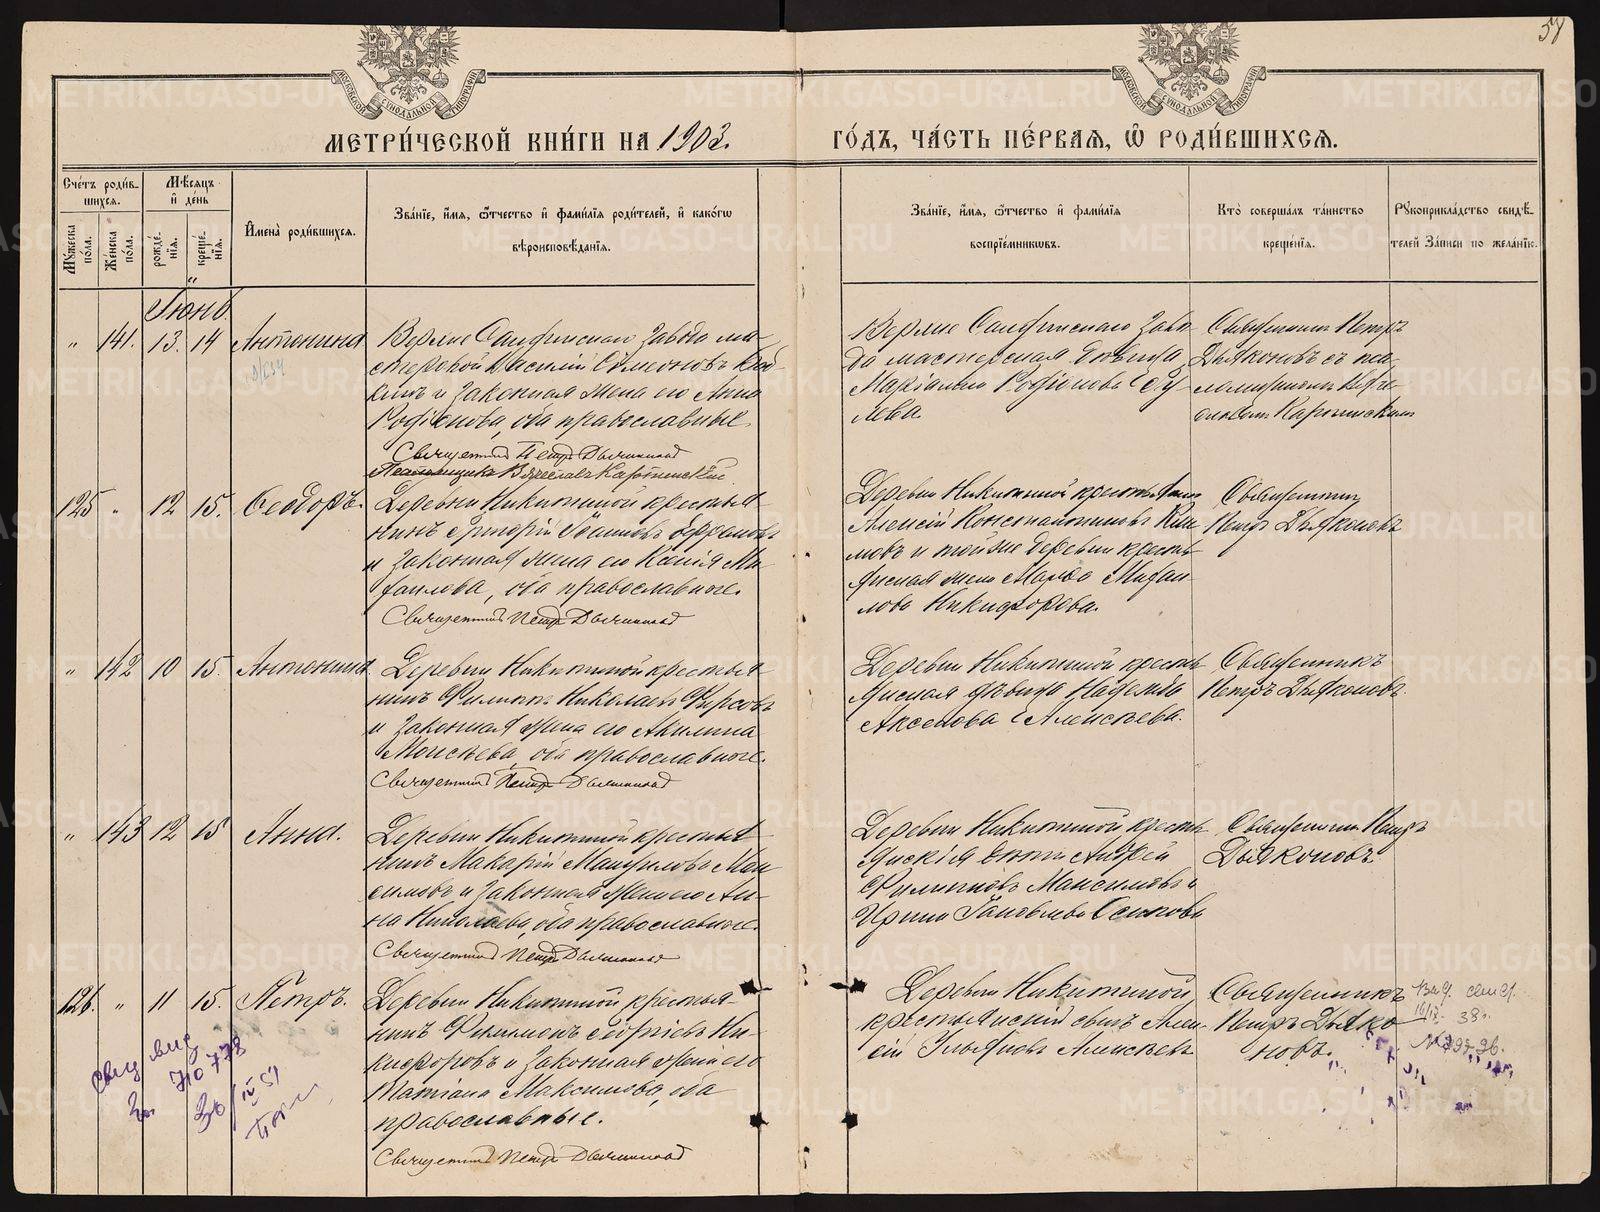 58
МОСКОВСКОЙ СѴНОДАЛЬНОЙ ТИПОГРАФІИ
МОСКОВСКОЙ СѴНОДАЛЬНОЙ ТИПОГРАФІИ
МЕТРИ́ЧЕСКОЙ КНИ́ГИ НА 1903.
ГО́ДЪ, ЧА́СТЬ ПЕ́РВАѦ, Ѡ҆ РОДИ́ВШИХСѦ.
Сче́тъ роди́в-
шихсѧ.
Мѣ́сѧцъ
и҆ де́нь
Му́жеска
по́ла.
Же́нска
по́ла.
рожде́-
нїѧ.
креще́-
нїѧ.
И҆мена̀ роди́вшихсѧ.
Зва́нїе, и҆́мѧ, ѻ҆́тчество и҆ фами́лїѧ роди́телей, и҆ како́гѡ
вѣроисповѣ́данїѧ.
Зва́нїе, и҆́мѧ, ѻ҆́тчество и҆ фами́лїѧ
воспрїе́мниковъ.
Кто̀ соверша́лъ та́инство
креще́нїѧ.
Рукоприкла́дство свидѣ́-
телей за́писи по жела́нїю.
Іюнь.
" 141. 13. 14 Антонина
Верхне Салдинскаго завода ма-
стеровой Василій Симеоновъ
и законная жена его Анна
Родіонова, оба православные.
Священникъ Петръ Дьяконовъ
Псаломщикъ Вячеславъ Карпинскій
Верхне Салдинскаго заво
да мастерская девица
Родіонова
Священникъ Петръ
Дьяконовъ съ пса-
ломщикомъ Вяче-
славомъ Карпинскимъ
125 " 12 15. Ѳеодоръ.
Деревни Никитиной крестья
нинъ Григорій Ефремовъ
и законная жена его Ксенія Ми
хаилова, оба православные.
Священникъ Петръ Дьяконовъ
Деревни Никитиной крестьянинъ
Алексій Константиновъ Кли
мовъ и той же деревни кресть
янская жена Марѳа Михаи
лова Никифорова.
Священникъ
Петръ Дьяконовъ
" 142 10 15. Антонина.
Деревни Никитиной крестья
нинъ Филиппъ Николаевъ Фирсовъ
и законная жена его Акилина
Моисѣева, оба православные.
Священникъ Петръ Дьяконовъ
Деревни Никитиной кресть
янская дѣвица Надежда
Аксенова Алексѣева.
Священникъ
Петръ Дьяконовъ.
" 143 12 15 Анна.
Деревни Никитиной крестья
нинъ Макарій Мак
симовъ и законная жена его Ан-
на Николаева, оба православные.
Священникъ Петръ Дьяконовъ
Деревни Никитиной кресть
янскія дѣти Андрей
Филипповъ Максимовъ и
Ирина Яковлева Осипова
Священникъ Петръ
Дьяконовъ
126. " 11 15. Петръ.
Деревни Никитиной крестья-
нинъ Филимонъ Георгіевъ Ни-
кифоровъ и законная жена его
Татіана Максимова, оба
православные.
Священникъ Петръ Дьяконовъ
Деревни Никитиной,
крестьянскій сынъ Алек
сій Ульяновъ Алексѣевъ
Священникъ
Петръ Дьяко
новъ.
38г.
710778
30/IV 51